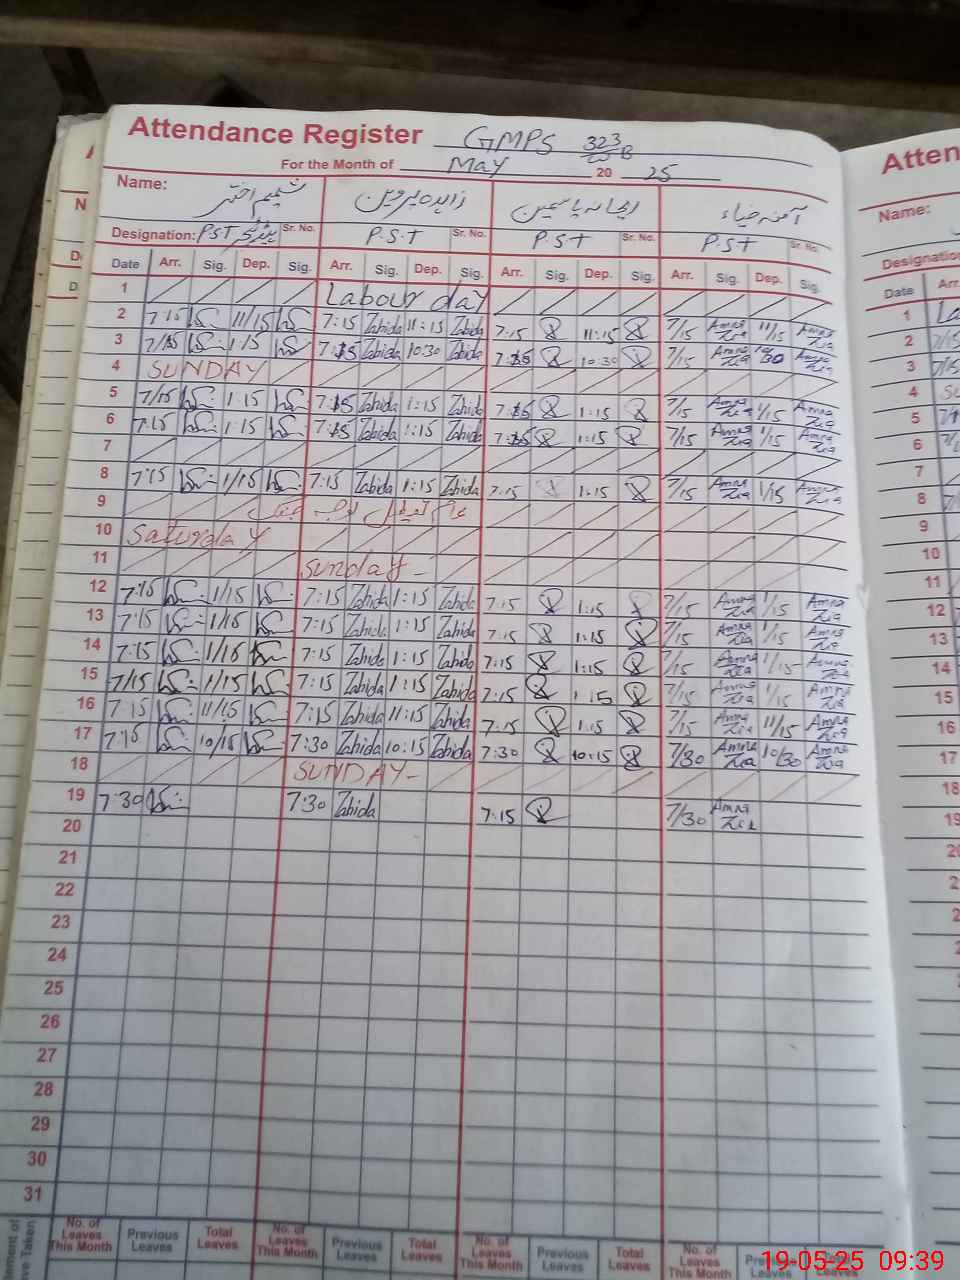 Attendance Register GMPS 323/WB
For the Month of May 20 25
Name: شمیم اختر زاہدہ پروین ریحانہ یاسمین آمنہ ضیاء
Designation: PST Sr. No. P.S.T Sr. No. P.S.T Sr. No. P.S.T Sr. No.
Date Arr. Sig. Dep. Sig. Arr. Sig. Dep. Sig. Arr. Sig. Dep. Sig. Arr. Sig. Dep. Sig.
1 Labour day
2 7:15 11/15 7:15 Zahida 11:15 Zahida 7:15 11:15 7/15 Amna Zia 11/15 Amna Zia
3 7/15 1:15 7:15 Zahida 10:30 Zahida 7:15 10:30 7/15 Amna Zia 10/30 Amna Zia
4 SUNDAY
5 7/15 1:15 7:15 Zahida 1:15 Zahida 7:15 1:15 7/15 Amna Zia 1/15 Amna Zia
6 7:15 1:15 7:15 Zahida 1:15 Zahida 7:15 1:15 7/15 Amna Zia 1/15 Amna Zia
7
8 7:15 1/15 7:15 Zahida 1:15 Zahida 7:15 1:15 7/15 Amna Zia 1/15 Amna Zia
9
10 Saturday
11 Sunday -
12 7:15 1/15 7:15 Zahida 1:15 Zahida 7:15 1:15 7/15 Amna Zia 1/15 Amna Zia
13 7:15 1/15 7:15 Zahida 1:15 Zahida 7:15 1:15 7/15 Amna Zia 1/15 Amna Zia
14 7:15 1/15 7:15 Zahida 1:15 Zahida 7:15 1:15 7/15 Amna Zia 1/15 Amna Zia
15 7/15 1/15 7:15 Zahida 1:15 Zahida 7:15 1:15 7/15 Amna Zia 1/15 Amna Zia
16 7:15 11/15 7:15 Zahida 11:15 Zahida 7:15 1:15 7/15 Amna Zia 11/15 Amna Zia
17 7:15 10/15 7:30 Zahida 10:15 Zahida 7:30 10:15 7/30 Amna Zia 10/30 Amna Zia
18 SUNDAY-
19 7:30 7:30 Zahida 7:15 7/30 Amna Zia
20
21
22
23
24
25
26
27
28
29
30
31
No. of Leaves This Month Previous Leaves Total Leaves No. of Leaves This Month Previous Leaves Total Leaves No. of Leaves This Month Previous Leaves Total Leaves No. of Leaves This Month Previous Leaves Total Leaves
Atten
Name:
Designation
Date Arr.
1 La
2 7/15
3 7/15
4 Su
5
6
7
8
9
10
11
12
13
14
15
16
17
18
19
20
2
2
19-05-25 09:39